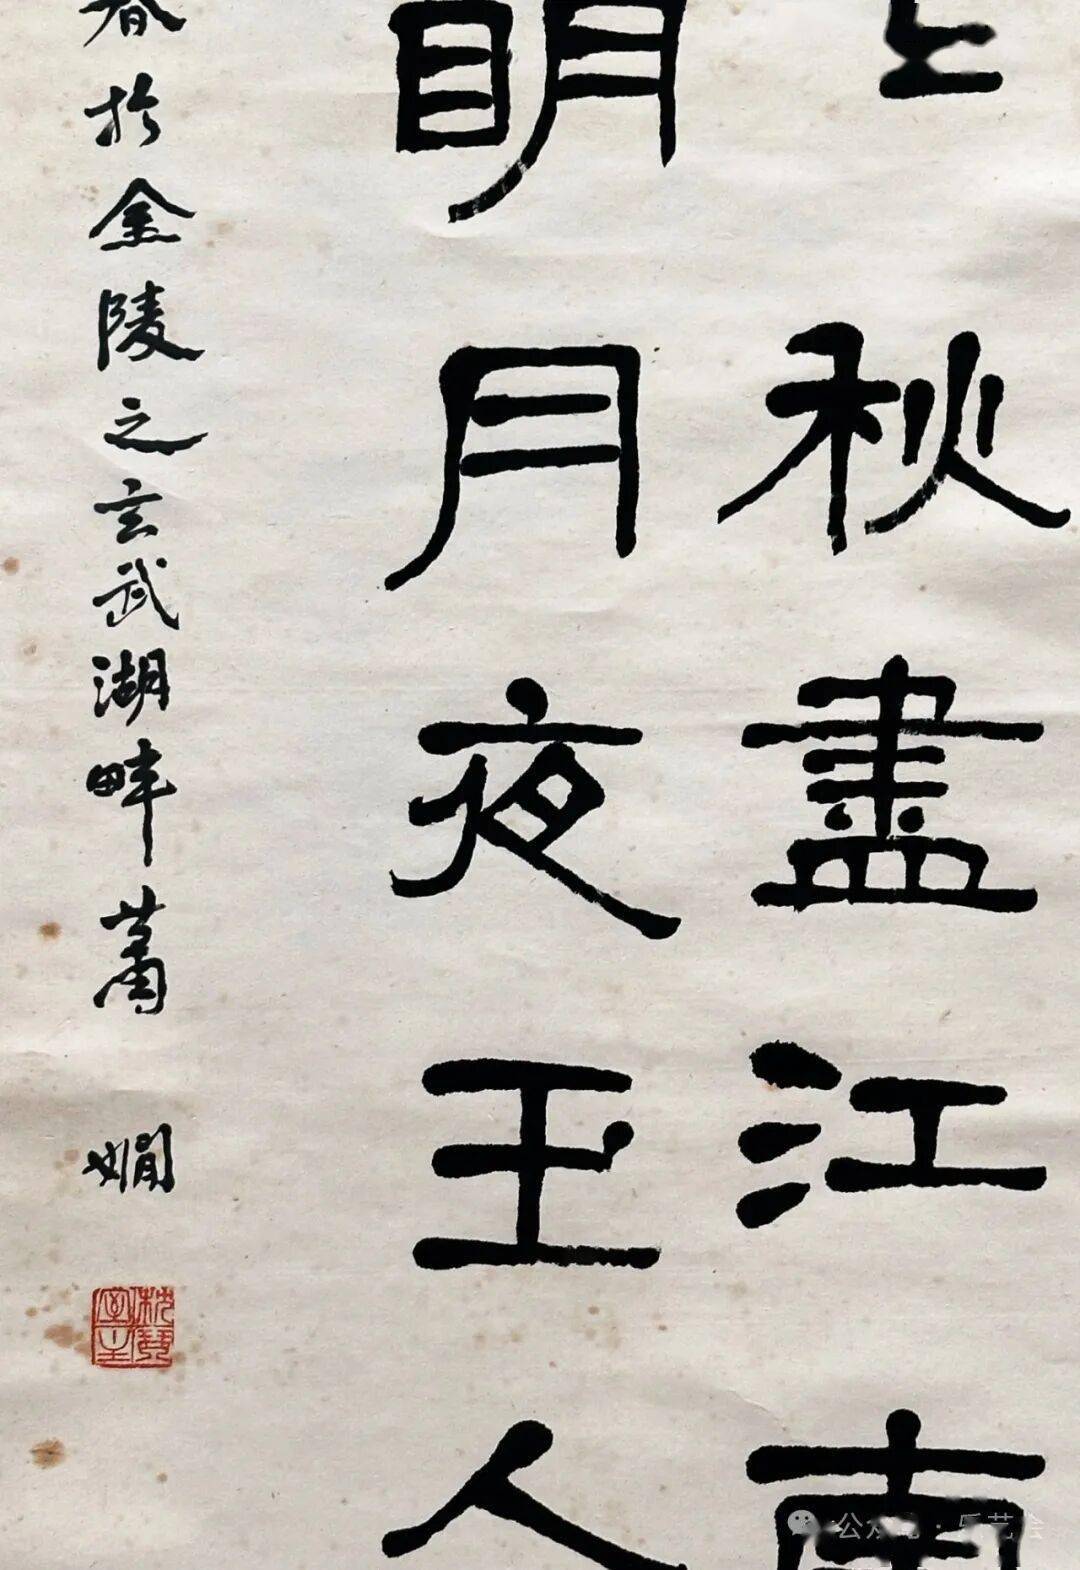 秋盡江南
明月夜玉人
春於金陵之玄武湖畔蕭嫻
枕琴室主
公众号·乐艺会